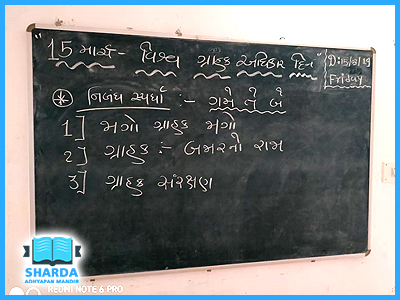 "15 માર્ચ - વિશ્વ ગ્રાહક અધિકાર દિન"
D:15/3/19
Friday
નિબંધ સ્પર્ધા :- ગમે તે બે
1] જાગો ગ્રાહક જાગો
2] ગ્રાહક :- બજારનો રાજા
3] ગ્રાહક સંરક્ષણ
SHARDA
ADHYAPAN MANDIR
REDMI NOTE 6 PRO